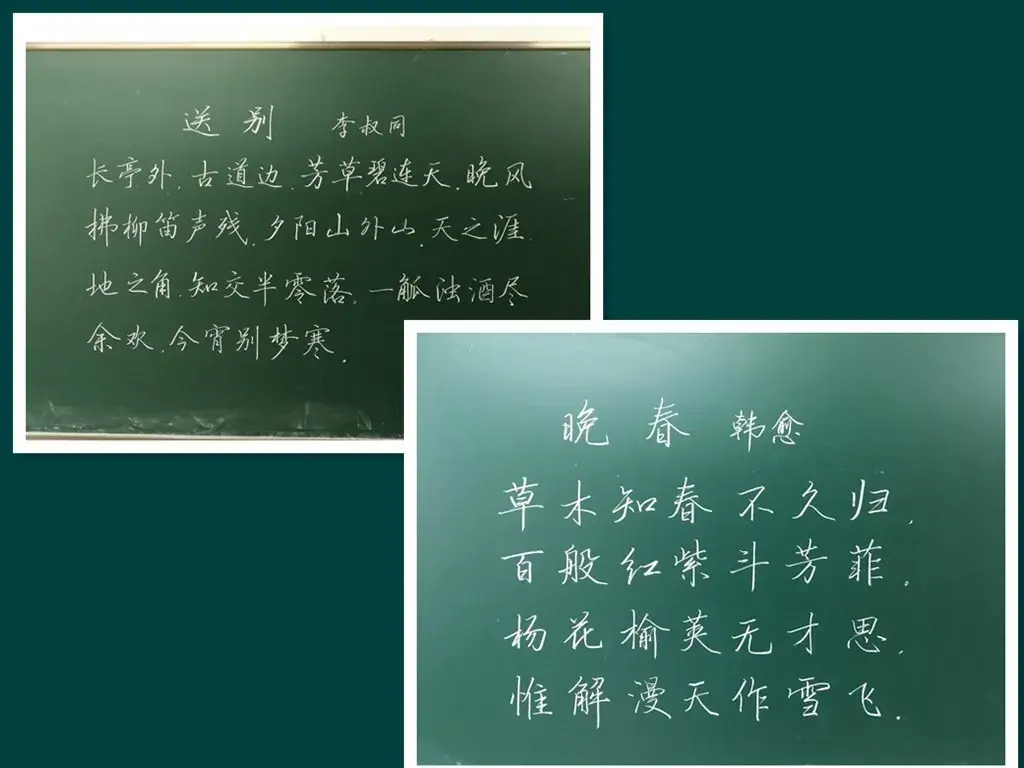 送别 李叔同
长亭外,古道边,芳草碧连天,晚风
拂柳笛声残,夕阳山外山,天之涯,
地之角,知交半零落,一觚浊酒尽
余欢,今宵别梦寒.
晚春 韩愈
草木知春不久归,
百般红紫斗芳菲,
杨花榆荚无才思,
惟解漫天作雪飞.